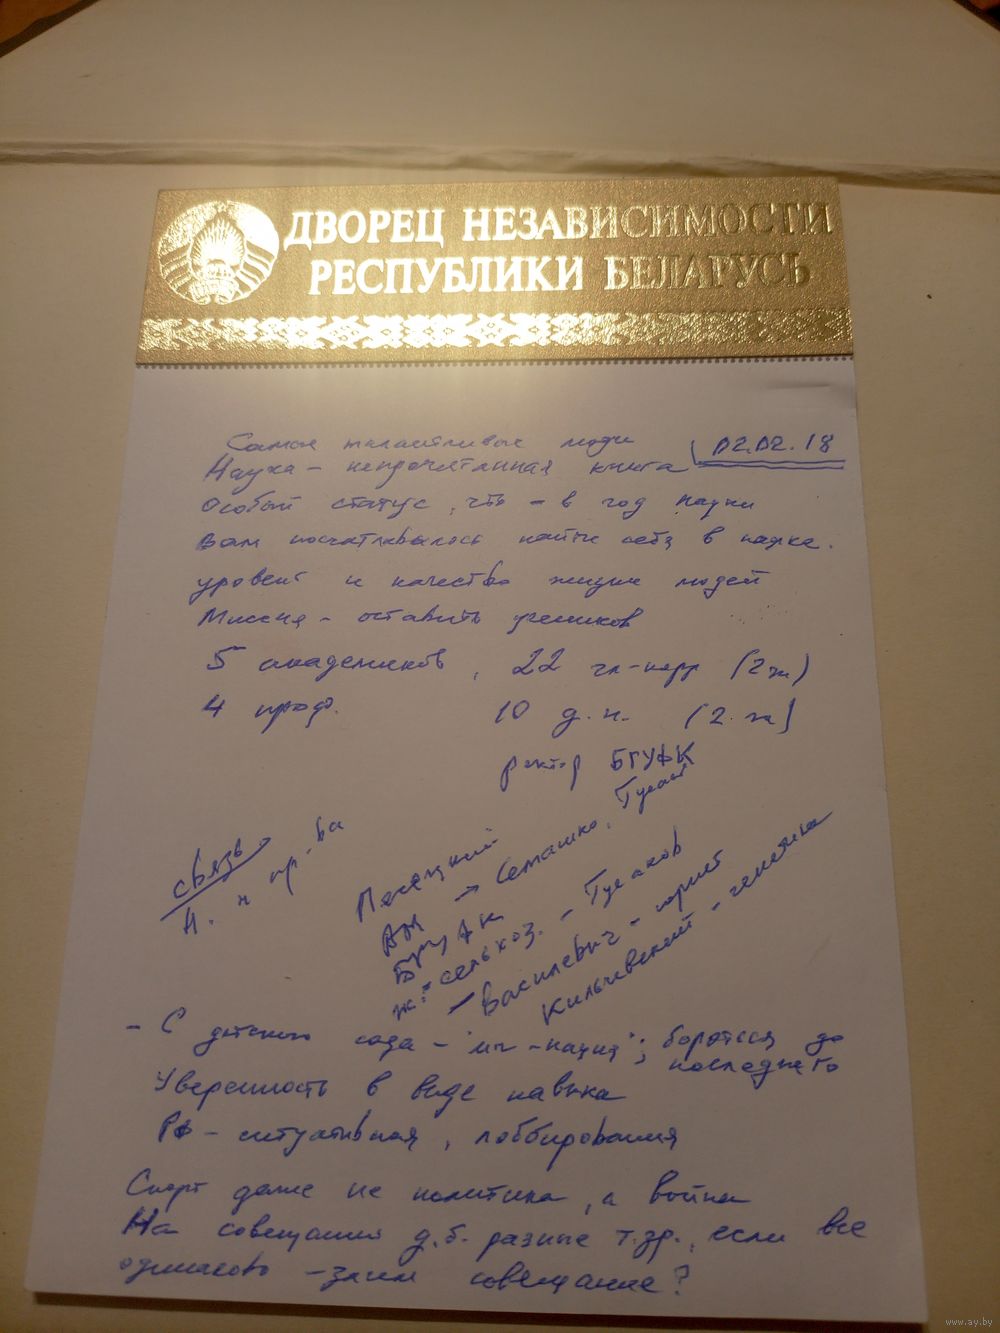 ДВОРЕЦ НЕЗАВИСИМОСТИ
РЕСПУБЛИКИ БЕЛАРУСЬ
Самые талантливые люди
02.02.18
Наука - непрочитанная книга
Особый статус, что - в год науки
Вам посчастливилось найти себя в науке.
уровень и качество жизни людей
Миссия - оставить учеников
5 академиков, 22 чл-корр (2 ж)
4 проф. 10 д.н. (2 ж)
ректор БГУФК
связь
Н. и пр-ва
АМ → Семашко,
БГУФК
сельхоз. - Гусаков
- Василевич - юрист
Кильчевский - генетика
- С детского сада - "мч - наука"; бороться до
последнего
Уверенность в виде навыка
РФ - ситуативная, лоббирования
Спорт даже не политика, а война
На совещании д.б. разные т.зр., если все
одинаково - зачем совещание?
www.ay.by